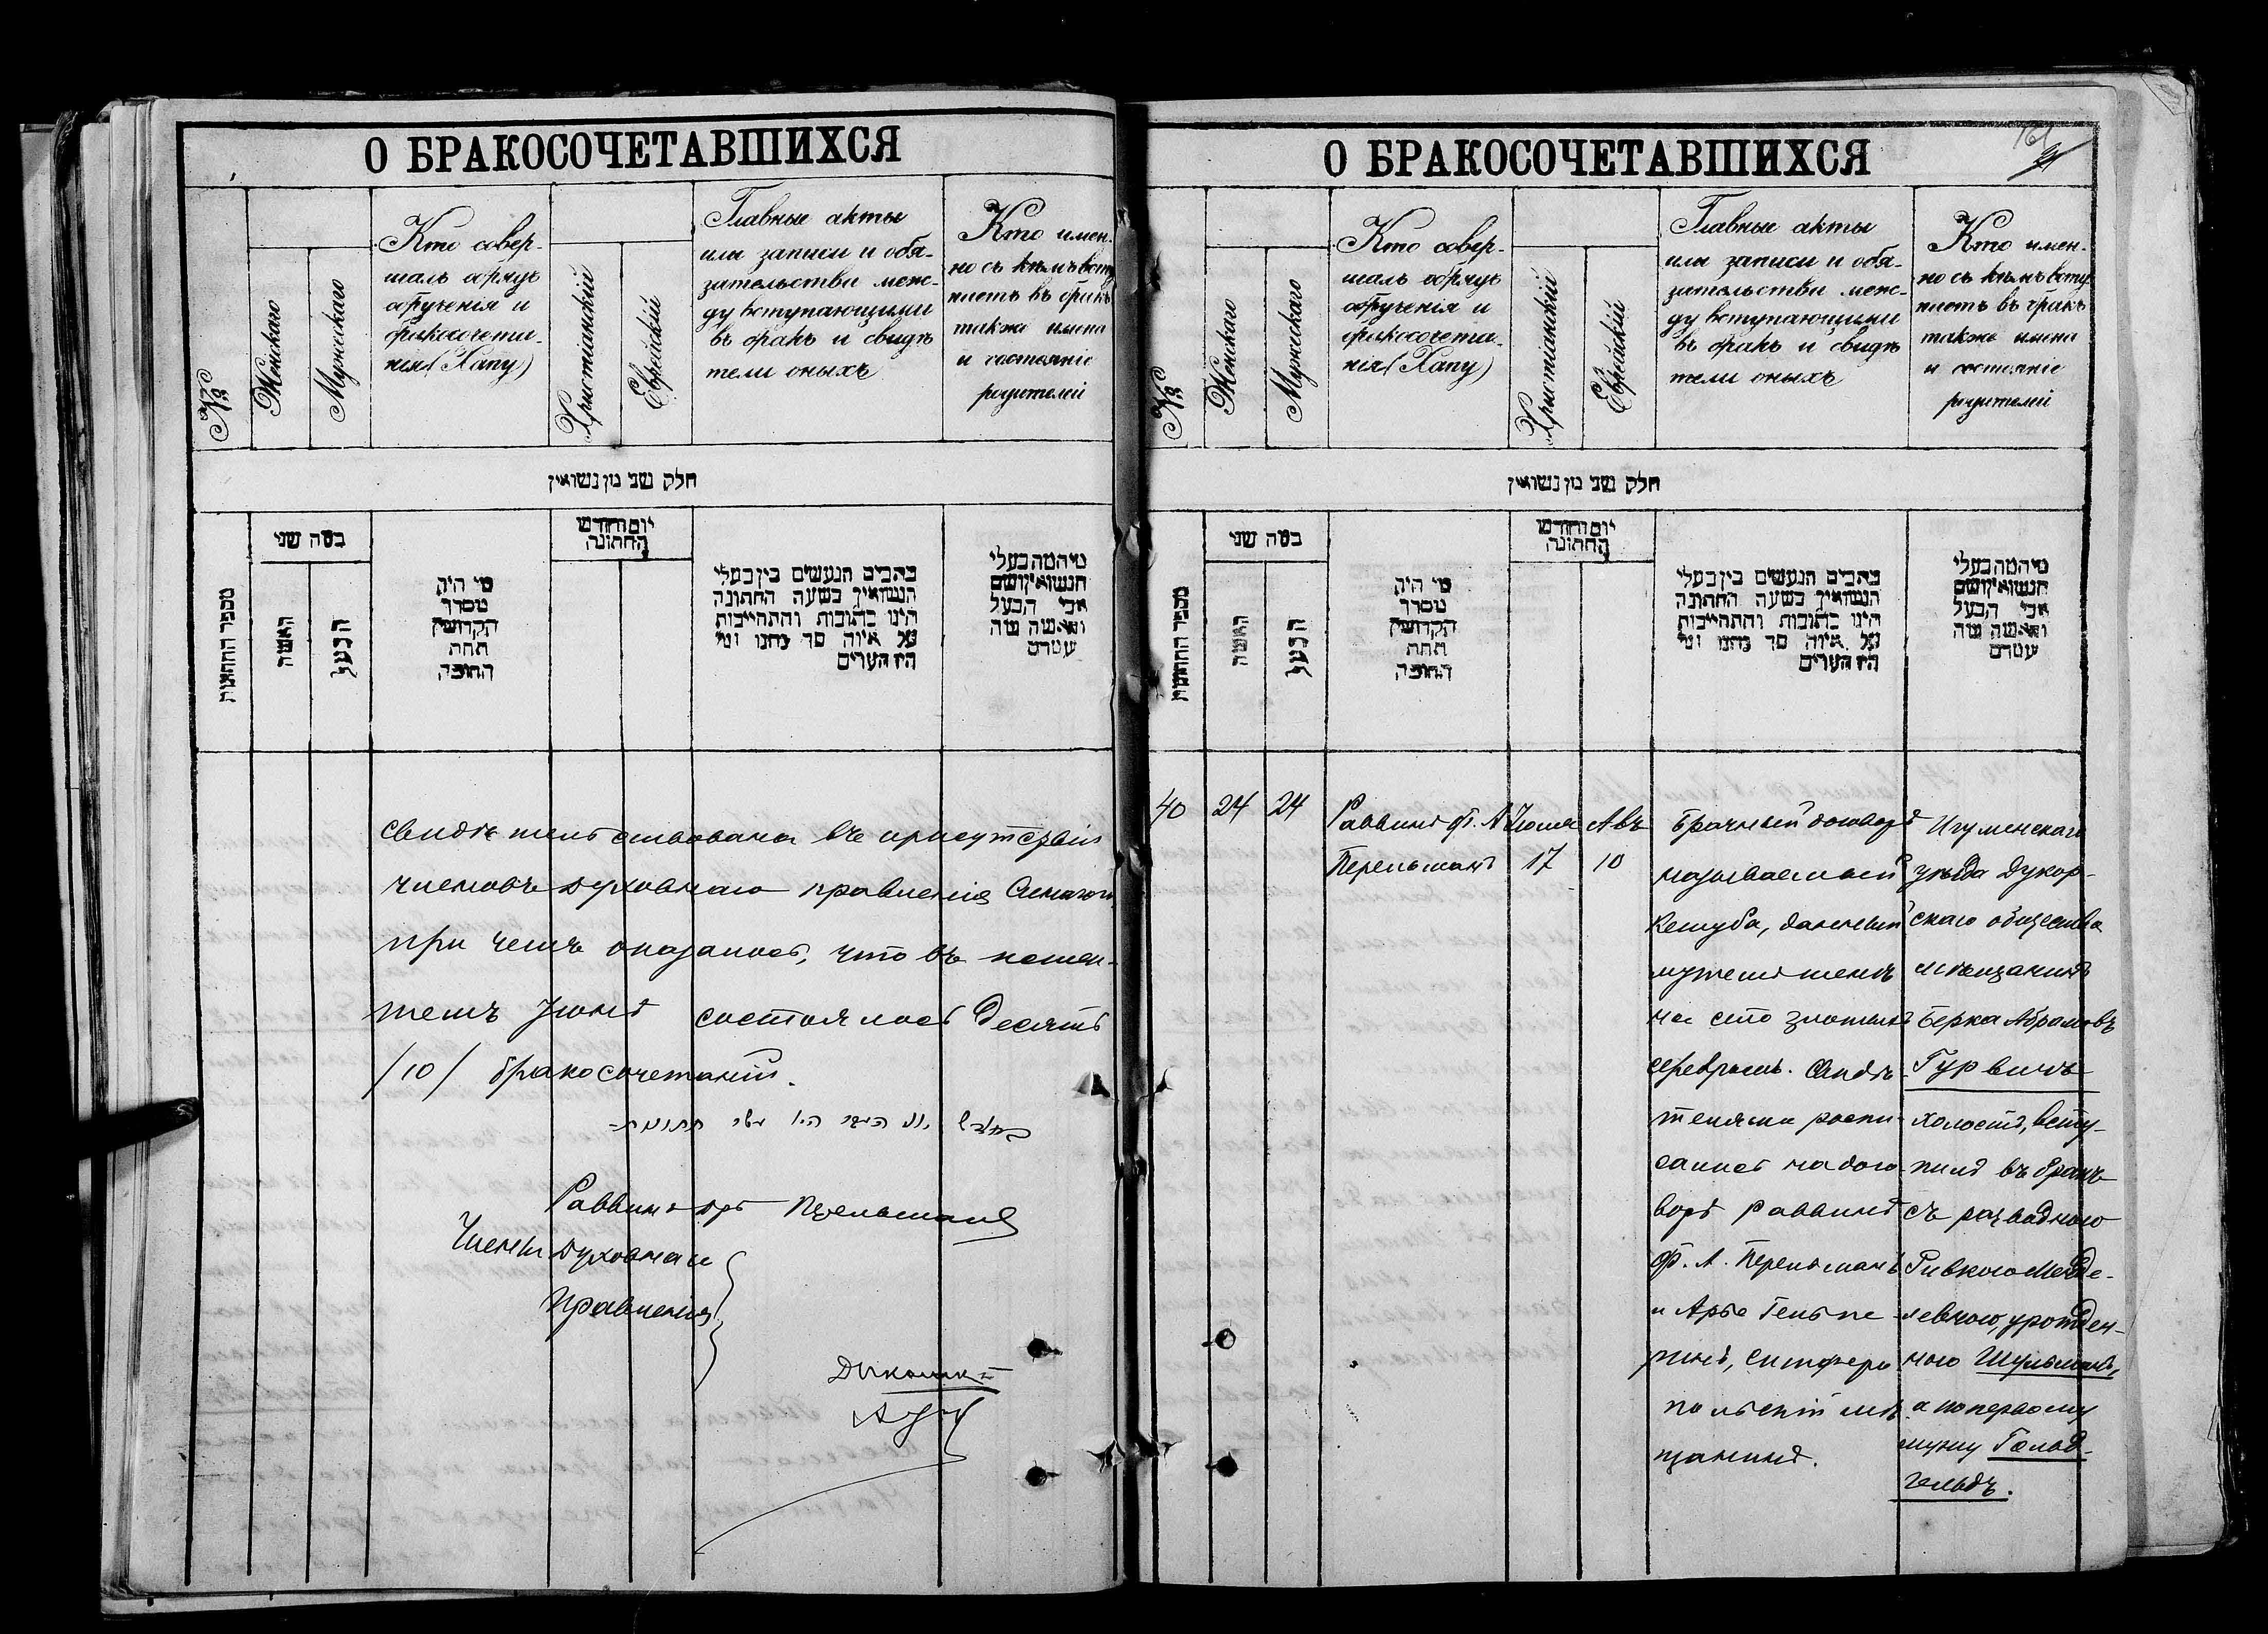 О БРАКОСОЧЕТАВШИХСЯ
№
Женскаго
Мужескаго
Кто совер-
шалъ обрядъ
обрученія и
бракосочета-
нія (Хапу)
Христіанскій
Еврейскій
Главные акты
или записи и обя-
зательства меж-
ду вступающими
въ бракъ и свидѣ
тели оныхъ
Кто имен-
но съ кѣмъ всту
паетъ въ бракъ
также имена
и состояніе
родителей
חלק שני מן נשואין
מספר החתונות
במה שני
האשה
הבעל
מי היה
מסדר
הקדושין
תחת
החופה
יום וחודש
החתונה
כתבים הנעשים בין בעלי
הנשואין בשעה החתונה
היינו כתובות והתחייבות
על איזה סך נתנו ומי
היו העדים
מי המה בעלי
הנשואין ושם
אבי הבעל
והאשה ומה
עמדם
свидѣтельствована въ присутствіи
членовъ духовнаго правленія Синагоги,
при чемъ оказалось, что въ
Іюнѣ состоялось десять
/10/ бракосочетаній.
Раввинъ Перельманъ
Члены духовнаго
Правленія
О БРАКОСОЧЕТАВШИХСЯ
161
№
Женскаго
Мужескаго
Кто совер-
шалъ обрядъ
обрученія и
бракосочета-
нія (Хапу)
Христіанскій
Еврейскій
Главные акты
или записи и обя-
зательства меж-
ду вступающими
въ бракъ и свидѣ
тели оныхъ
Кто имен-
но съ кѣмъ всту
паетъ въ бракъ
также имена
и состояніе
родителей
חלק שני מן נשואין
מספר החתונות
במה שני
האשה
הבעל
מי היה
מסדר
הקדושין
תחת
החופה
יום וחודש
החתונה
כתבים הנעשים בין בעלי
הנשואין בשעה החתונה
היינו כתובות והתחייבות
על איזה סך נתנו ומי
היו העדים
מי המה בעלי
הנשואין ושם
אבי הבעל
והאשה ומה
עמדם
40
24
24
Раввинъ Ф. А
Перельманъ
Іюля
17
Авъ
10
Брачный договоръ
называемый
Кетуба, данный
мужемъ женѣ
на сто злотыхъ
серебромъ. Свидѣ
телями распи-
сались на дого
ворѣ раввинъ
Ф. А. Перельманъ
и Арье Гельпе
ринъ, симферо
польскій мѣ
щанинъ.
Игуменскаго
уѣзда Дукор-
скаго общества
мѣщанинъ
Берка Абрамовъ
Гурвичъ
холостъ, всту-
пилъ въ бракъ
съ разводною
Ривкою Менде-
левною, урожден-
ною Шульманъ,
а по первому
мужу Гольд-
гельдъ.